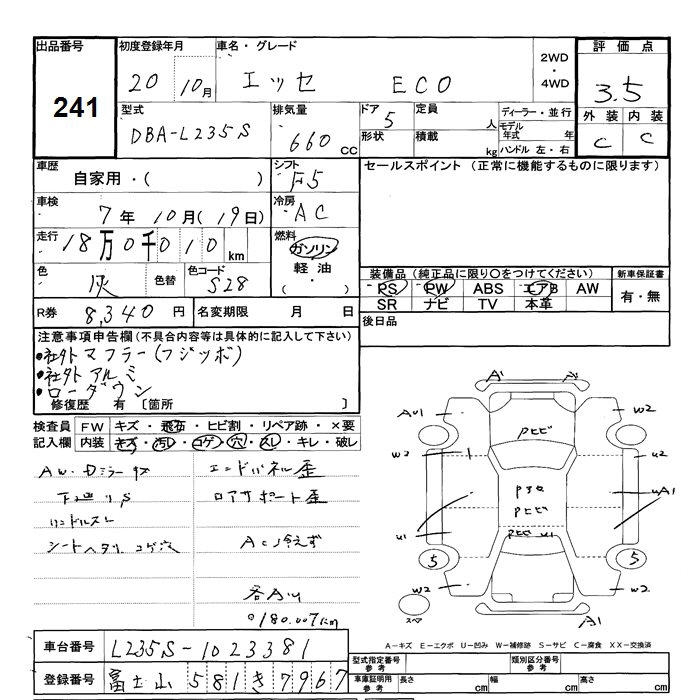 出品番号 初度登録年月 車名・グレード 2WD・4WD 評価点
241 20 10月 エッセ ECO 3.5
型式 排気量 ドア 定員 ディーラー・並行 外装 内装
DBA-L235S 660 CC 5 人 モデル年式 年 C C
形状 積載 kg ハンドル 左・右
車歴 シフト セールスポイント (正常に機能するものに限ります)
自家用・( ) F5
車検 7年10月(19日) 冷房 AC
走行 18万0千010km 燃料 ガソリン 軽油 ・( )
色 灰 色替 色コード S28
装備品(純正品に限り○をつけてください) 新車保証書
PS PW ABS エアB AW 有・無
SR ナビ TV 本革
R券 8,340円 名変期限 月 日 後日品
注意事項申告欄(不具合内容等は具体的に記入して下さい)
・社外マフラー(フジツボ)
・社外アルミ
・ローダウン
修復歴 有 〔箇所 〕
検査員 FW キズ・飛石・ヒビ割・リペア跡・×要
記入欄 内装 キズ・汚レ・コゲ・穴・スレ・キレ・破レ
エンドパネル歪
ロアサポート歪
シートヘタリ コゲ穴
AC冷えず
各AU
180.007km
A' A'
AU1 W2
W2 U2
Pヒビ
UA1
Pヒビ
U1 Pヒビ U1
5 5
W2 W2
スペア A1
A-キズ E-エクボ U-凹み W-補修跡 S-サビ C-腐食 XX-交換済
車台番号 L235S-1023381
型式指定番号 参考 類別区分番号 参考
登録番号 富士山 581 き 7967
車庫証明用 参考 長さ cm 幅 cm 高さ cm